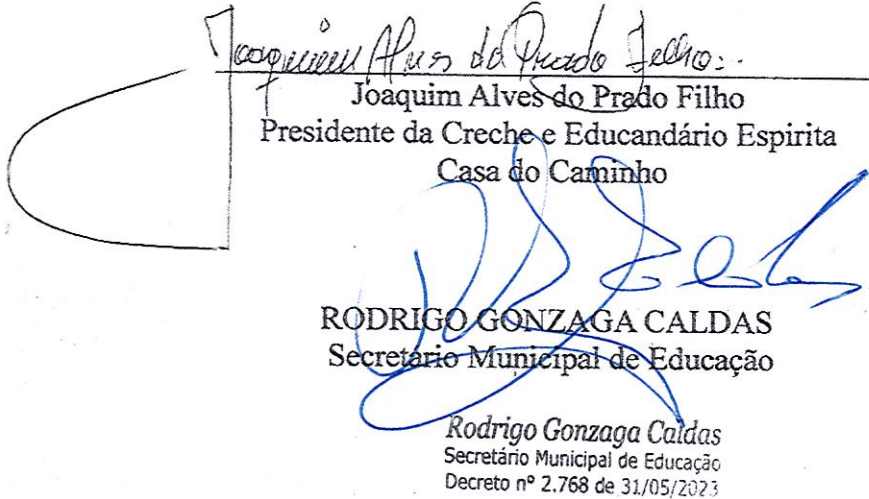 Joaquim Alves do Prado Filho
Joaquim Alves do Prado Filho
Presidente da Creche e Educandário Espirita
Casa do Caminho
RODRIGO GONZAGA CALDAS
Secretário Municipal de Educação
Rodrigo Gonzaga Caldas
Secretário Municipal de Educação
Decreto nº 2.768 de 31/05/2023